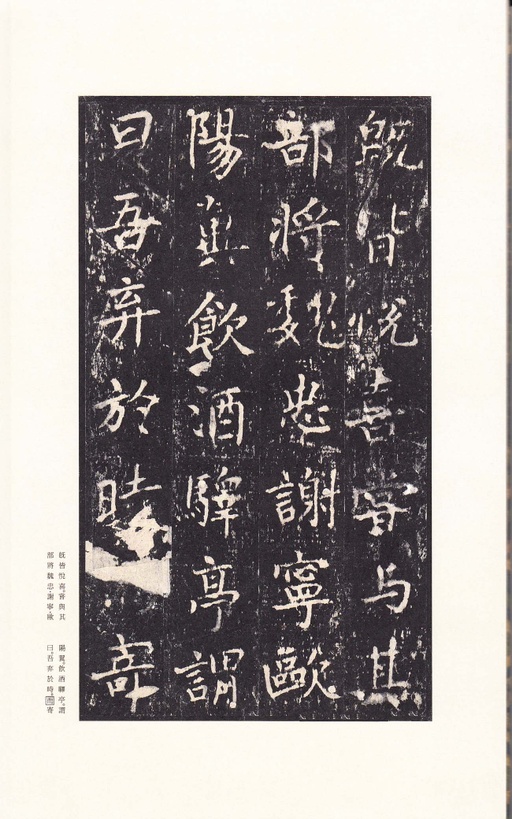 既皆悅喜甞与其
部將魏忠謝寧歐
陽翼飲酒驛亭謂
曰吾弃於時寄
既皆悅喜。甞與其
部將魏忠。謝寧。歐
陽翼。飲酒驛亭。謂
曰。吾弃於時而寄